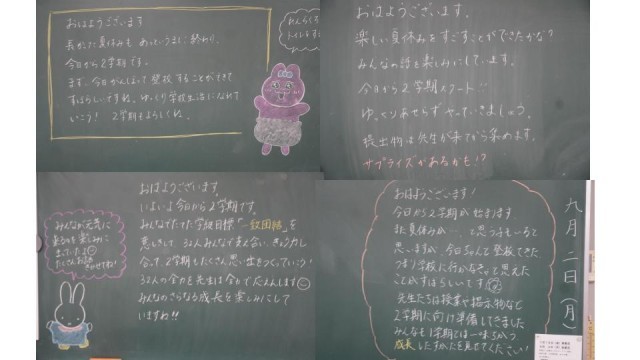 おはようございます
長かった夏休みも あっというまに終わり、
今日から2学期です。
まず、今日がんばって登校することができて
すばらしいですね。ゆっくり学校生活になれて
いこう! 2学期もよろしくね。
おはようございます。
楽しい夏休みをすごすことができたかな?
みんなの話を楽しみにしています。
今日から2学期スタート!!
ゆっくりあせらずやっていきましょう。
提出物は先生が来てから集めます。
サプライズがあるかも!?
おはようございます。
いよいよ今日から2学期です。
みんなでたてた学級目標「一致団結」を
意識して、32人みんなで支え合い、きょう力し
合って、2学期もたくさん思い出をつくっていこう!
32人の全力を先生は全力で
みんなのさらなる成長を楽しみにして
いますね!!
みんなが元気に
来るのを楽しみに
まっていたよ
たくさんお話
きかせてね!
おはようございます!
今日から2学期が始まります
まだ夏休みが…、て思う子もいると
思いますが、今日ちゃんと登校できた、
つまり学校に行かなきゃと思えた
ことがすばらしいです
先生たちは授業や掲示物など
2学期に向け準備してきました
みんなも1学期とは一味ちがう
成長したすがたを見せてくださ
九月二日(月)